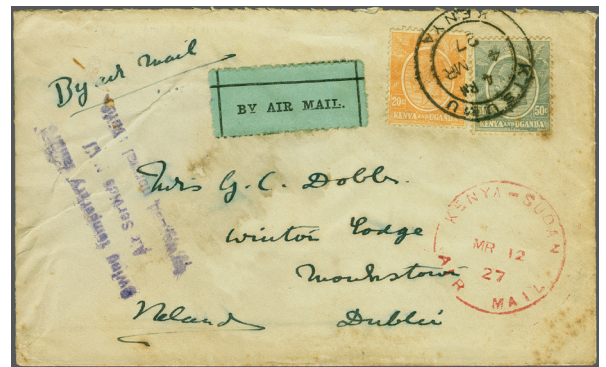 By air mail
BY AIR MAIL.
20c
KENYA AND UGANDA
50c
KENYA AND UGANDA
KISUMU
KENYA
MR
27
Owing temporary
Air Service
Mrs G. C. Dobbs.
Winton Lodge
Monkstown
Dublin
Ireland
KENYA-SUDAN
MR 12
27
AIR MAIL